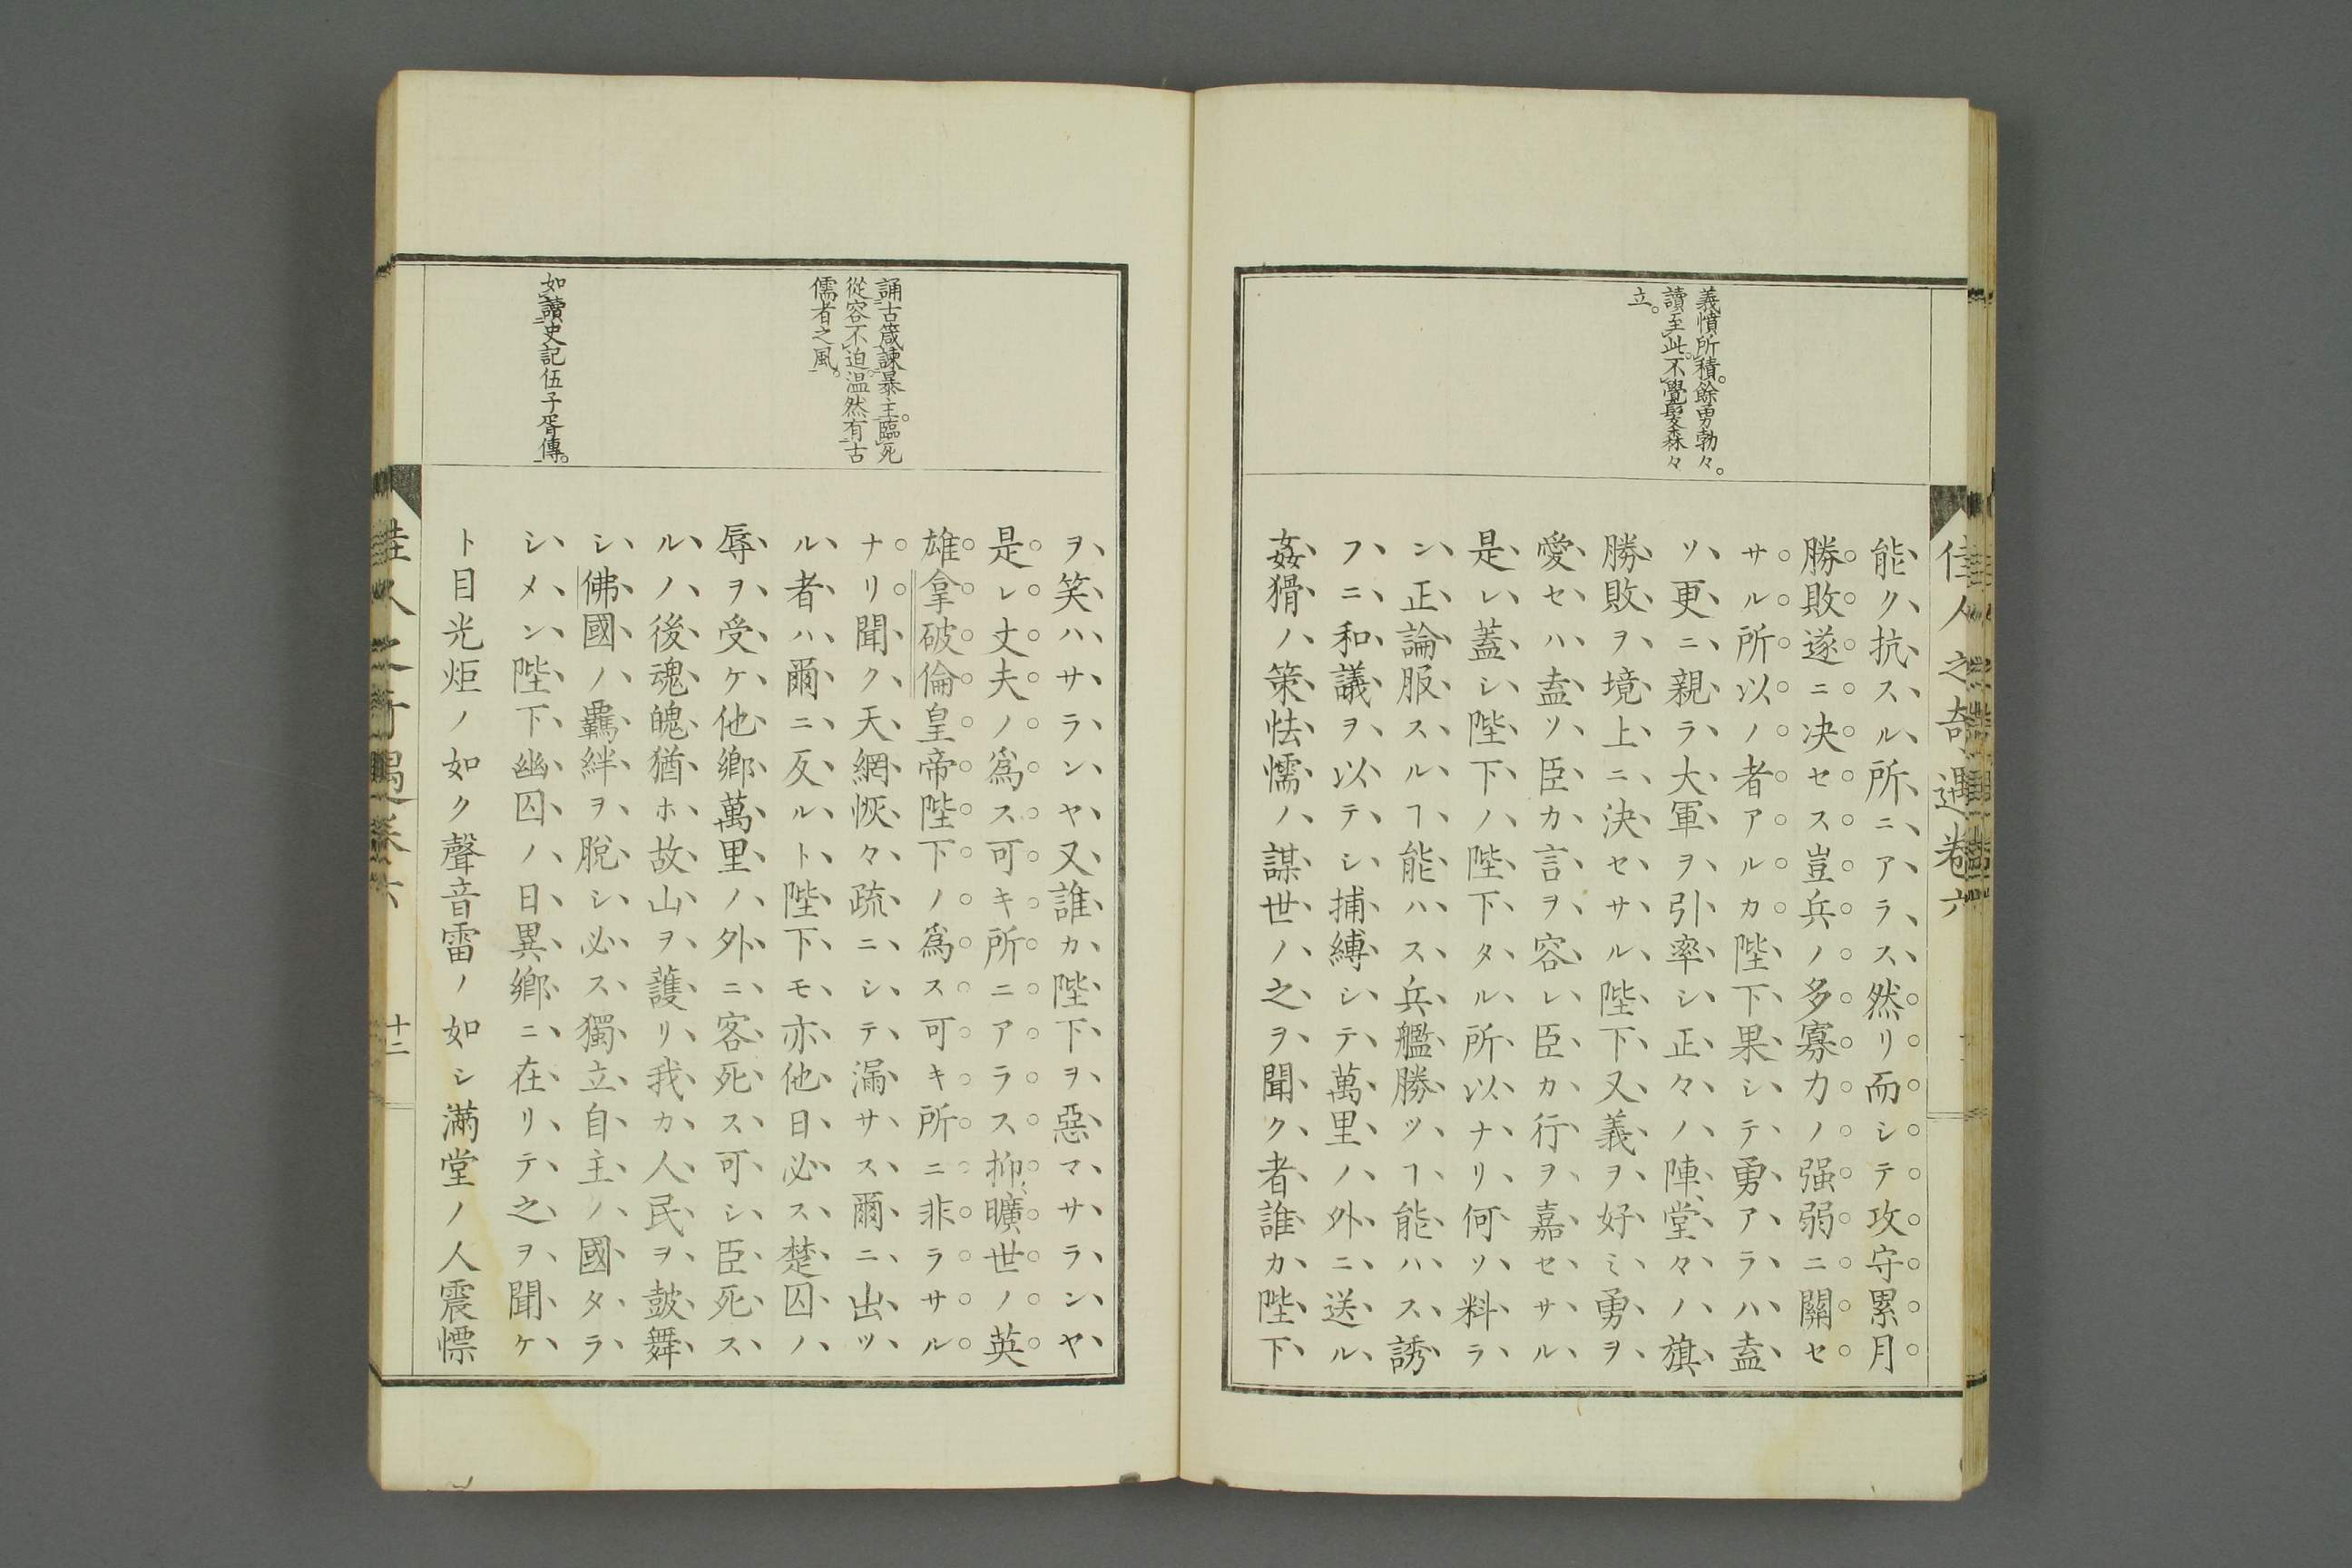 佳人之奇遇卷六
義憤所積。餘勇勃々。
讀至此。不覺髮森々
立。
能ク抗スル所ニアラス然リ而シテ攻守累月
勝敗遂ニ决セス豈兵ノ多寡力ノ强弱ニ關セ
サル所以ノ者アルカ陛下果シテ勇アラハ盍
ソ更ニ親ラ大軍ヲ引率シ正々ノ陣堂々ノ旗
勝敗ヲ境上ニ決セサル陛下又義ヲ好ミ勇ヲ
愛セハ盍ソ臣カ言ヲ容レ臣カ行ヲ嘉セサル
是レ蓋シ陛下ノ陛下タル所以ナリ何ソ料ラ
ン正論服スルヿ能ハス兵艦勝ツヿ能ハス誘
フニ和議ヲ以テシ捕縛シテ萬里ノ外ニ送ル
姦猾ノ策怯懦ノ謀世ノ之ヲ聞ク者誰カ陛下
誦古箴諫暴主。臨死
從容不迫。温然有古
儒者之風。
如讀史記伍子胥傳。
ヲ笑ハサランヤ又誰カ陛下ヲ惡マサランヤ
是レ丈夫ノ爲ス可キ所ニアラス抑曠世ノ英
雄拿破倫皇帝陛下ノ爲ス可キ所ニ非ラサル
ナリ聞ク天網恢々疏ニシテ漏サス爾ニ出ツ
ル者ハ爾ニ反ルト陛下モ亦他日必ス楚囚ノ
辱ヲ受ケ他鄕萬里ノ外ニ客死ス可シ臣死ス
ルノ後魂魄猶ホ故山ヲ護リ我カ人民ヲ鼓舞
シ佛國ノ羈絆ヲ脫シ必ス獨立自主ノ國タラ
シメン陛下幽囚ノ日異鄕ニ在リテ之ヲ聞ケ
ト目光炬ノ如ク聲音雷ノ如シ滿堂ノ人震慓
佳人之奇遇卷六
十二